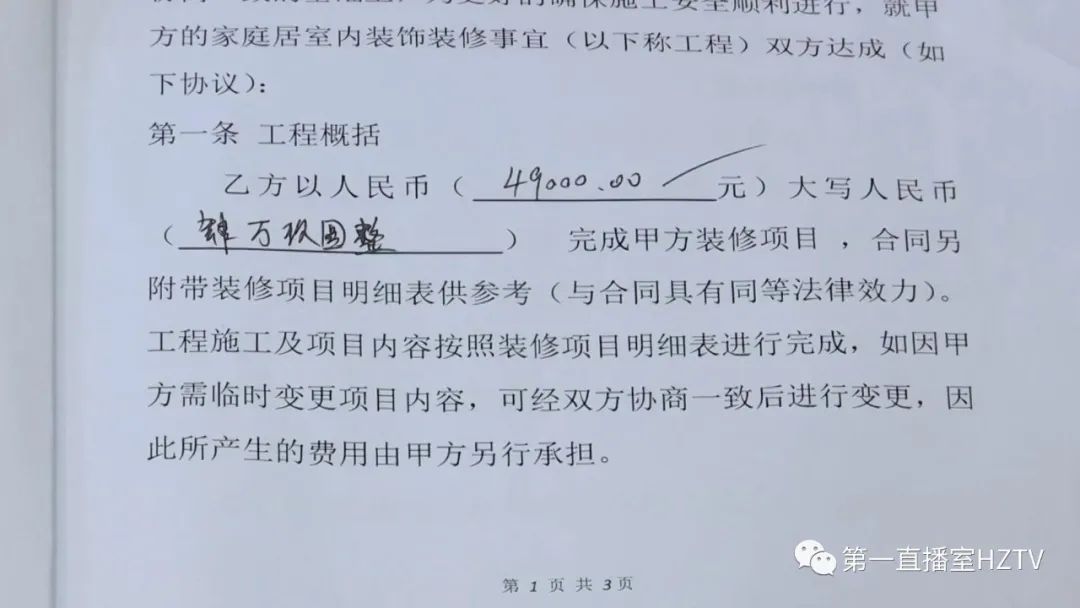 致的基础上，为更好的确保施工安全顺利进行，就甲
方的家庭居室内装饰装修事宜（以下称工程）双方达成（如
下协议）：
第一条 工程概括
乙方以人民币（ 49000.00 元）大写人民币
（ 肆万玖圆整 ） 完成甲方装修项目 ，合同另
附带装修项目明细表供参考（与合同具有同等法律效力）。
工程施工及项目内容按照装修项目明细表进行完成，如因甲
方需临时变更项目内容，可经双方协商一致后进行变更，因
此所产生的费用由甲方另行承担。
第一直播室HZTV
第 1 页 共 3 页